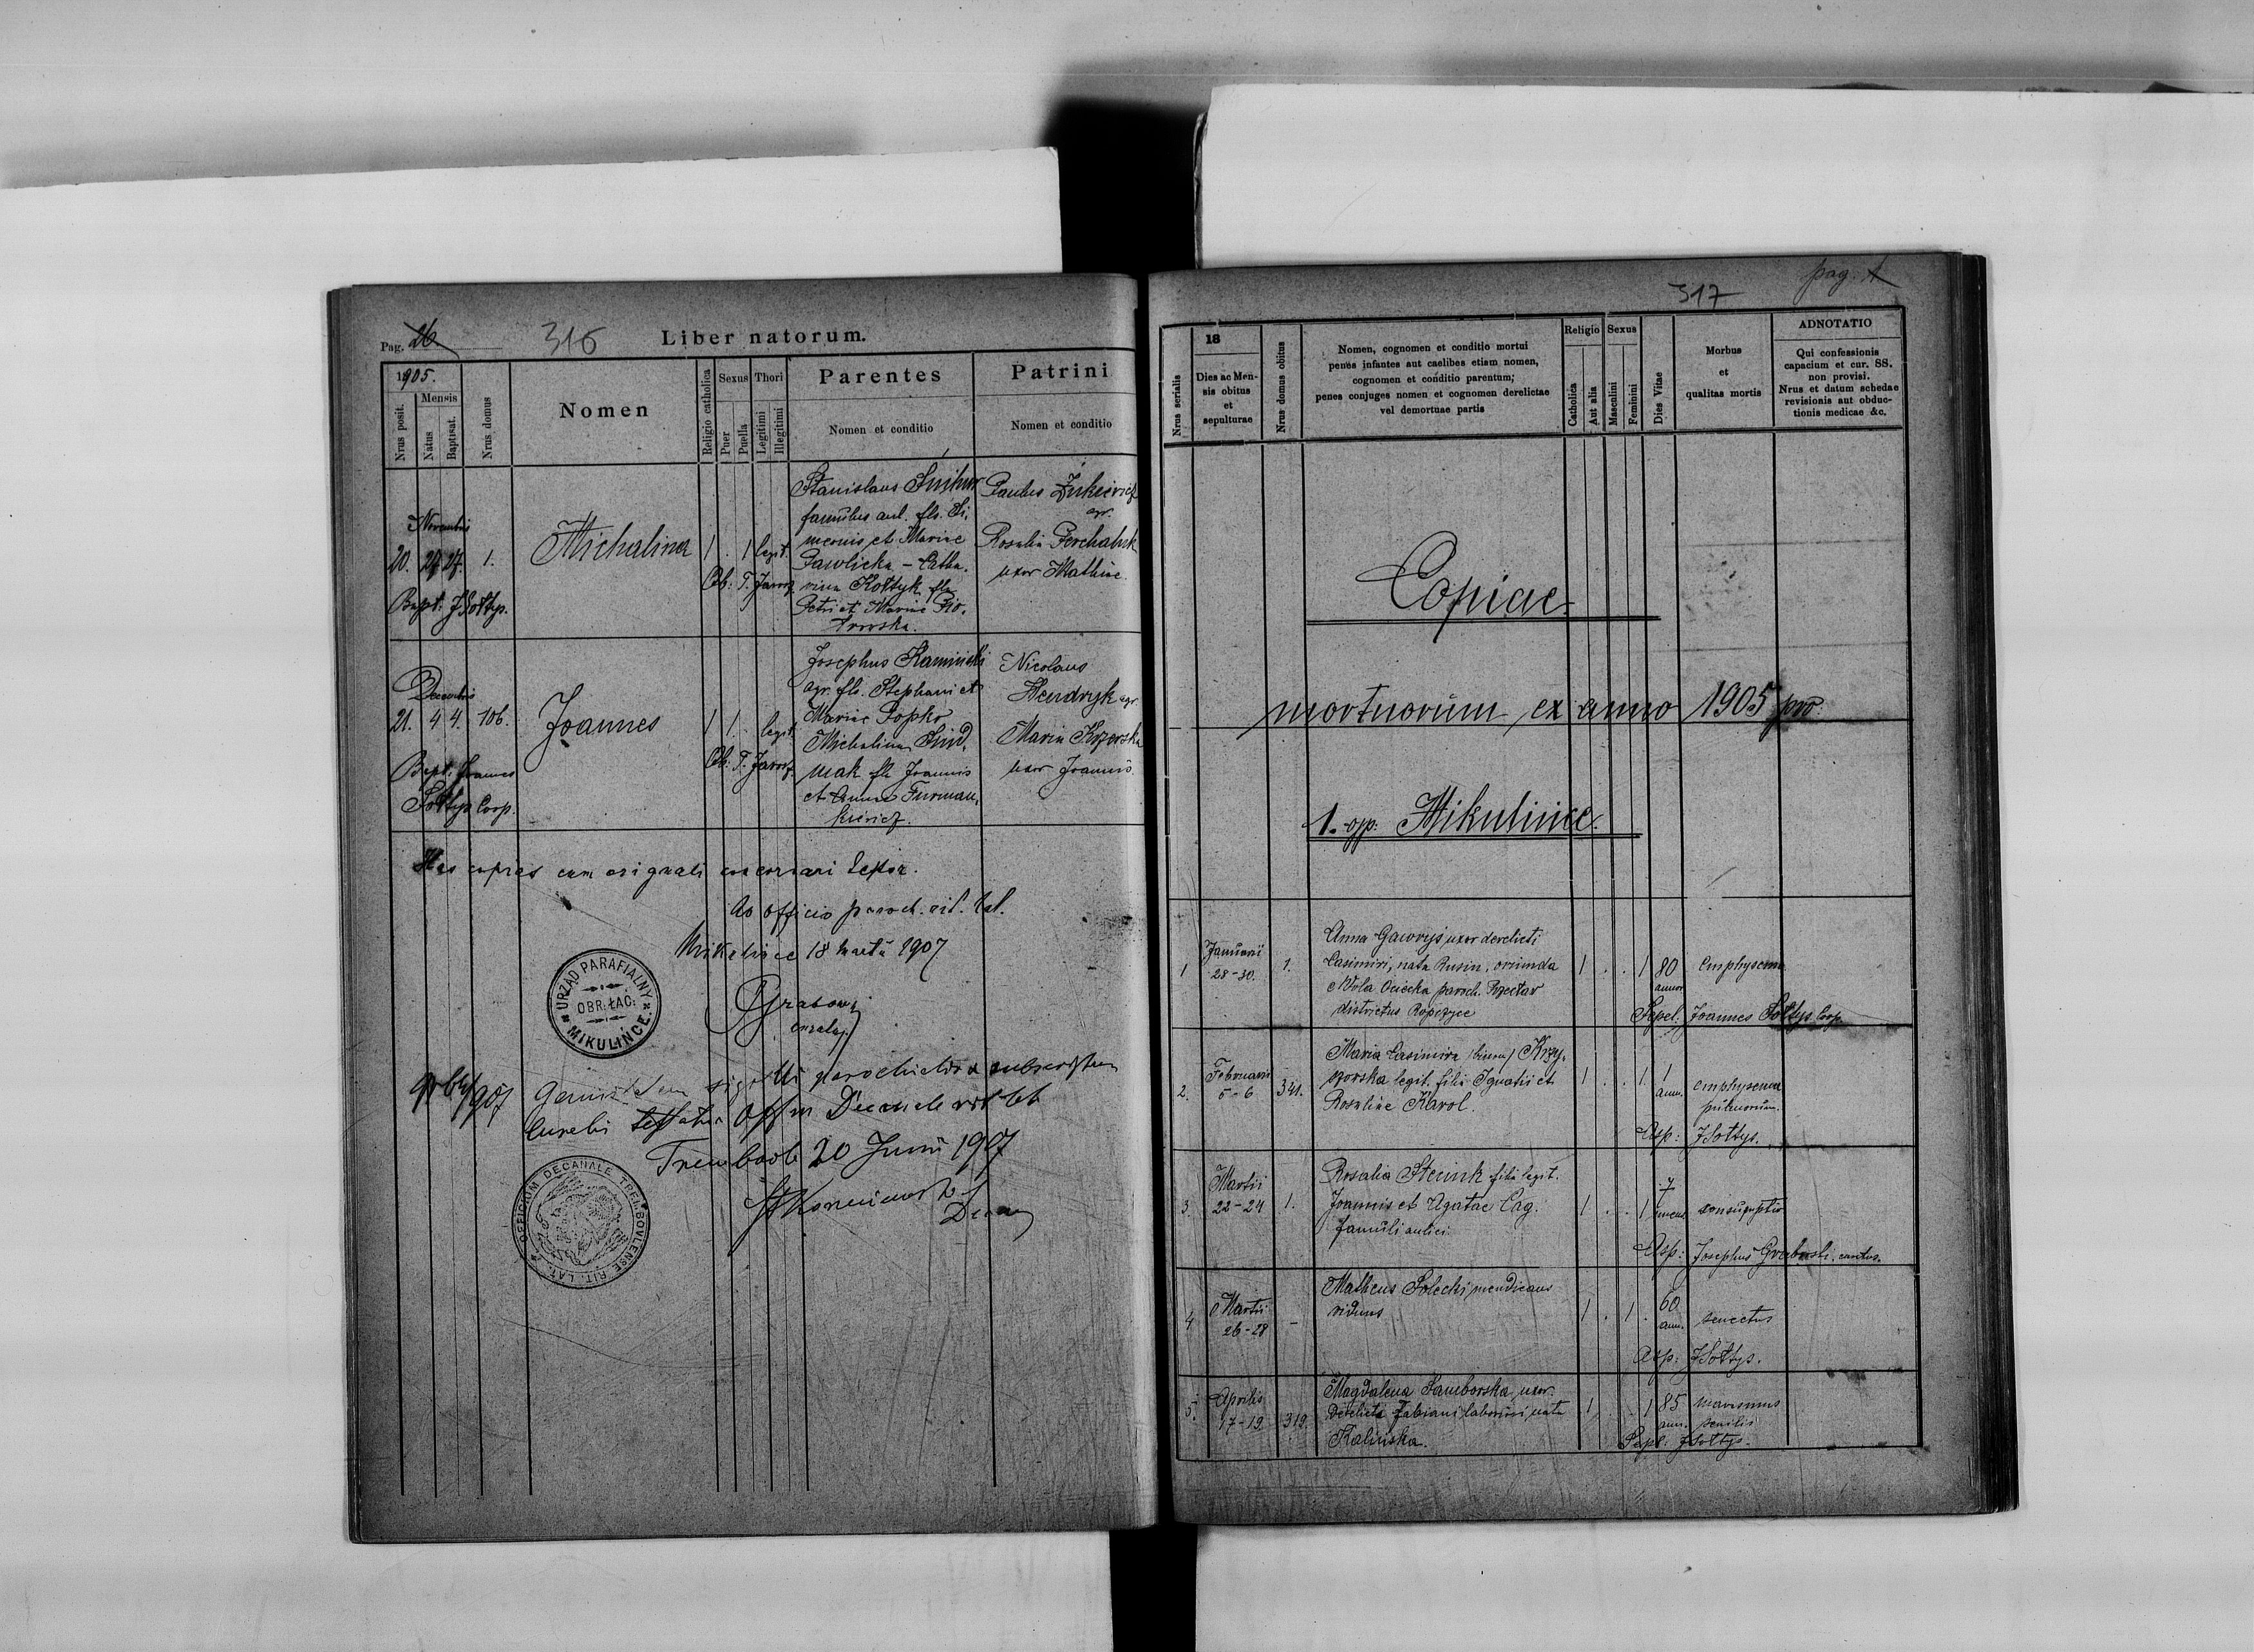 Pag. 26.
316
Liber natorum.
1905.
Mensis
Nrus posit.
Natus
Baptisat.
Nrus domus
Nomen
Religio catholica
Sexus
Puer
Puella
Thori
Legitimi
Illegitimi
Parentes
Nomen et conditio
Patrini
Nomen et conditio
Novembris
20. 27 27. 1.
Bapt. JSołtys.
Michalina
1 . 1 legit.
Ob: T. Jarosz
Stanislaus
famulus aul. fls. Si,
meonis et Mariae
Pawlicka - Catha,
rina Kołtyk fla
Petri et Mariae Pio,
trowska.
Paulus Żukiewicz
agr.
Rosalia Perchaluk
uxor Mathiae.
Decembris
21. 4 4. 106.
Bapt. Joannes
Sołtys Coop.
Joannes
1 1 . legit.
Ob: T. Jarosz
Josephus Kamiński
agr. fls. Stephani et
Mariae Popko
Michalina
mak fla Joannis
et Annae Furman,
kiewicz.
Nicolaus
Hendryk agr.
Maria
uxor Joannis
Has copias cum originali concordari testor.
Ab officio paroch. rit. lat.
Mikulince 18 Martii 1907
URZĄD PARAFIALNY
OBR. ŁAĆ.
MIKULIŃCE.
907
sigilli parochialis a subscriptum
Officium Decanale rit lat
Trembowla 20 Junii 1907
Decan
OFFICIUM DECANALE TREMBOVLENSE RIT. LAT.
317
pag. 1
Nrus serialis
18
Dies ac Men-
sis obitus
et
sepulturae
Nrus domus obitus
Nomen, cognomen et conditio mortui
penes infantes aut caelibes etiam nomen,
cognomen et conditio parentum;
penes conjuges nomen et cognomen derelictae
vel demortuae partis
Religio
Catholica
Aut alia
Sexus
Masculini
Feminini
Dies Vitae
Morbus
et
qualitas mortis
ADNOTATIO
Qui confessionis
capacium et cur. SS.
non provisi.
Nrus et datum schedae
revisionis aut obduc-
tionis medicae &c.
Copiae
mortuorum ex anno 1905 pro:
1. opp: Mikulince.
1
Januarii
28-30.
1.
Anna Gawryś uxor derelicti
Casimiri, nata Rusin, oriunda
e Wola Ociecka paroch.
districtus Ropczyce
1 . . 1
80
annor.
emphysema
Sepel. Joannes Sołtys Coop.
2.
Februarii
5-6
341.
Maria Casimira Krzy,
szowska legit. filia Ignatii et
Rosaliae Karol.
1 . . 1.
1
ann.
emphysema
pulmonum.
Asp: JSołtys.
3.
Martii
22-24
1.
Rosalia filia legit.
Joannis et Agatae Cąg.
famuli aulici.
1 . . 1
7
mens
consumptio
Asp: Josephus Grabowski, curatus.
4
Martii
26-28
-
Matheus Solecki mendicans
viduus
1 . 1 .
60
ann.
senectus
Asp: JSołtys.
5.
Aprilis
17-19.
319.
Magdalena Samborska, uxor
derelicta Fabiani laboriosi, nata
Kalińska.
1 . . 1
85
ann.
marasmus
senilis
Sepl: JSołtys.